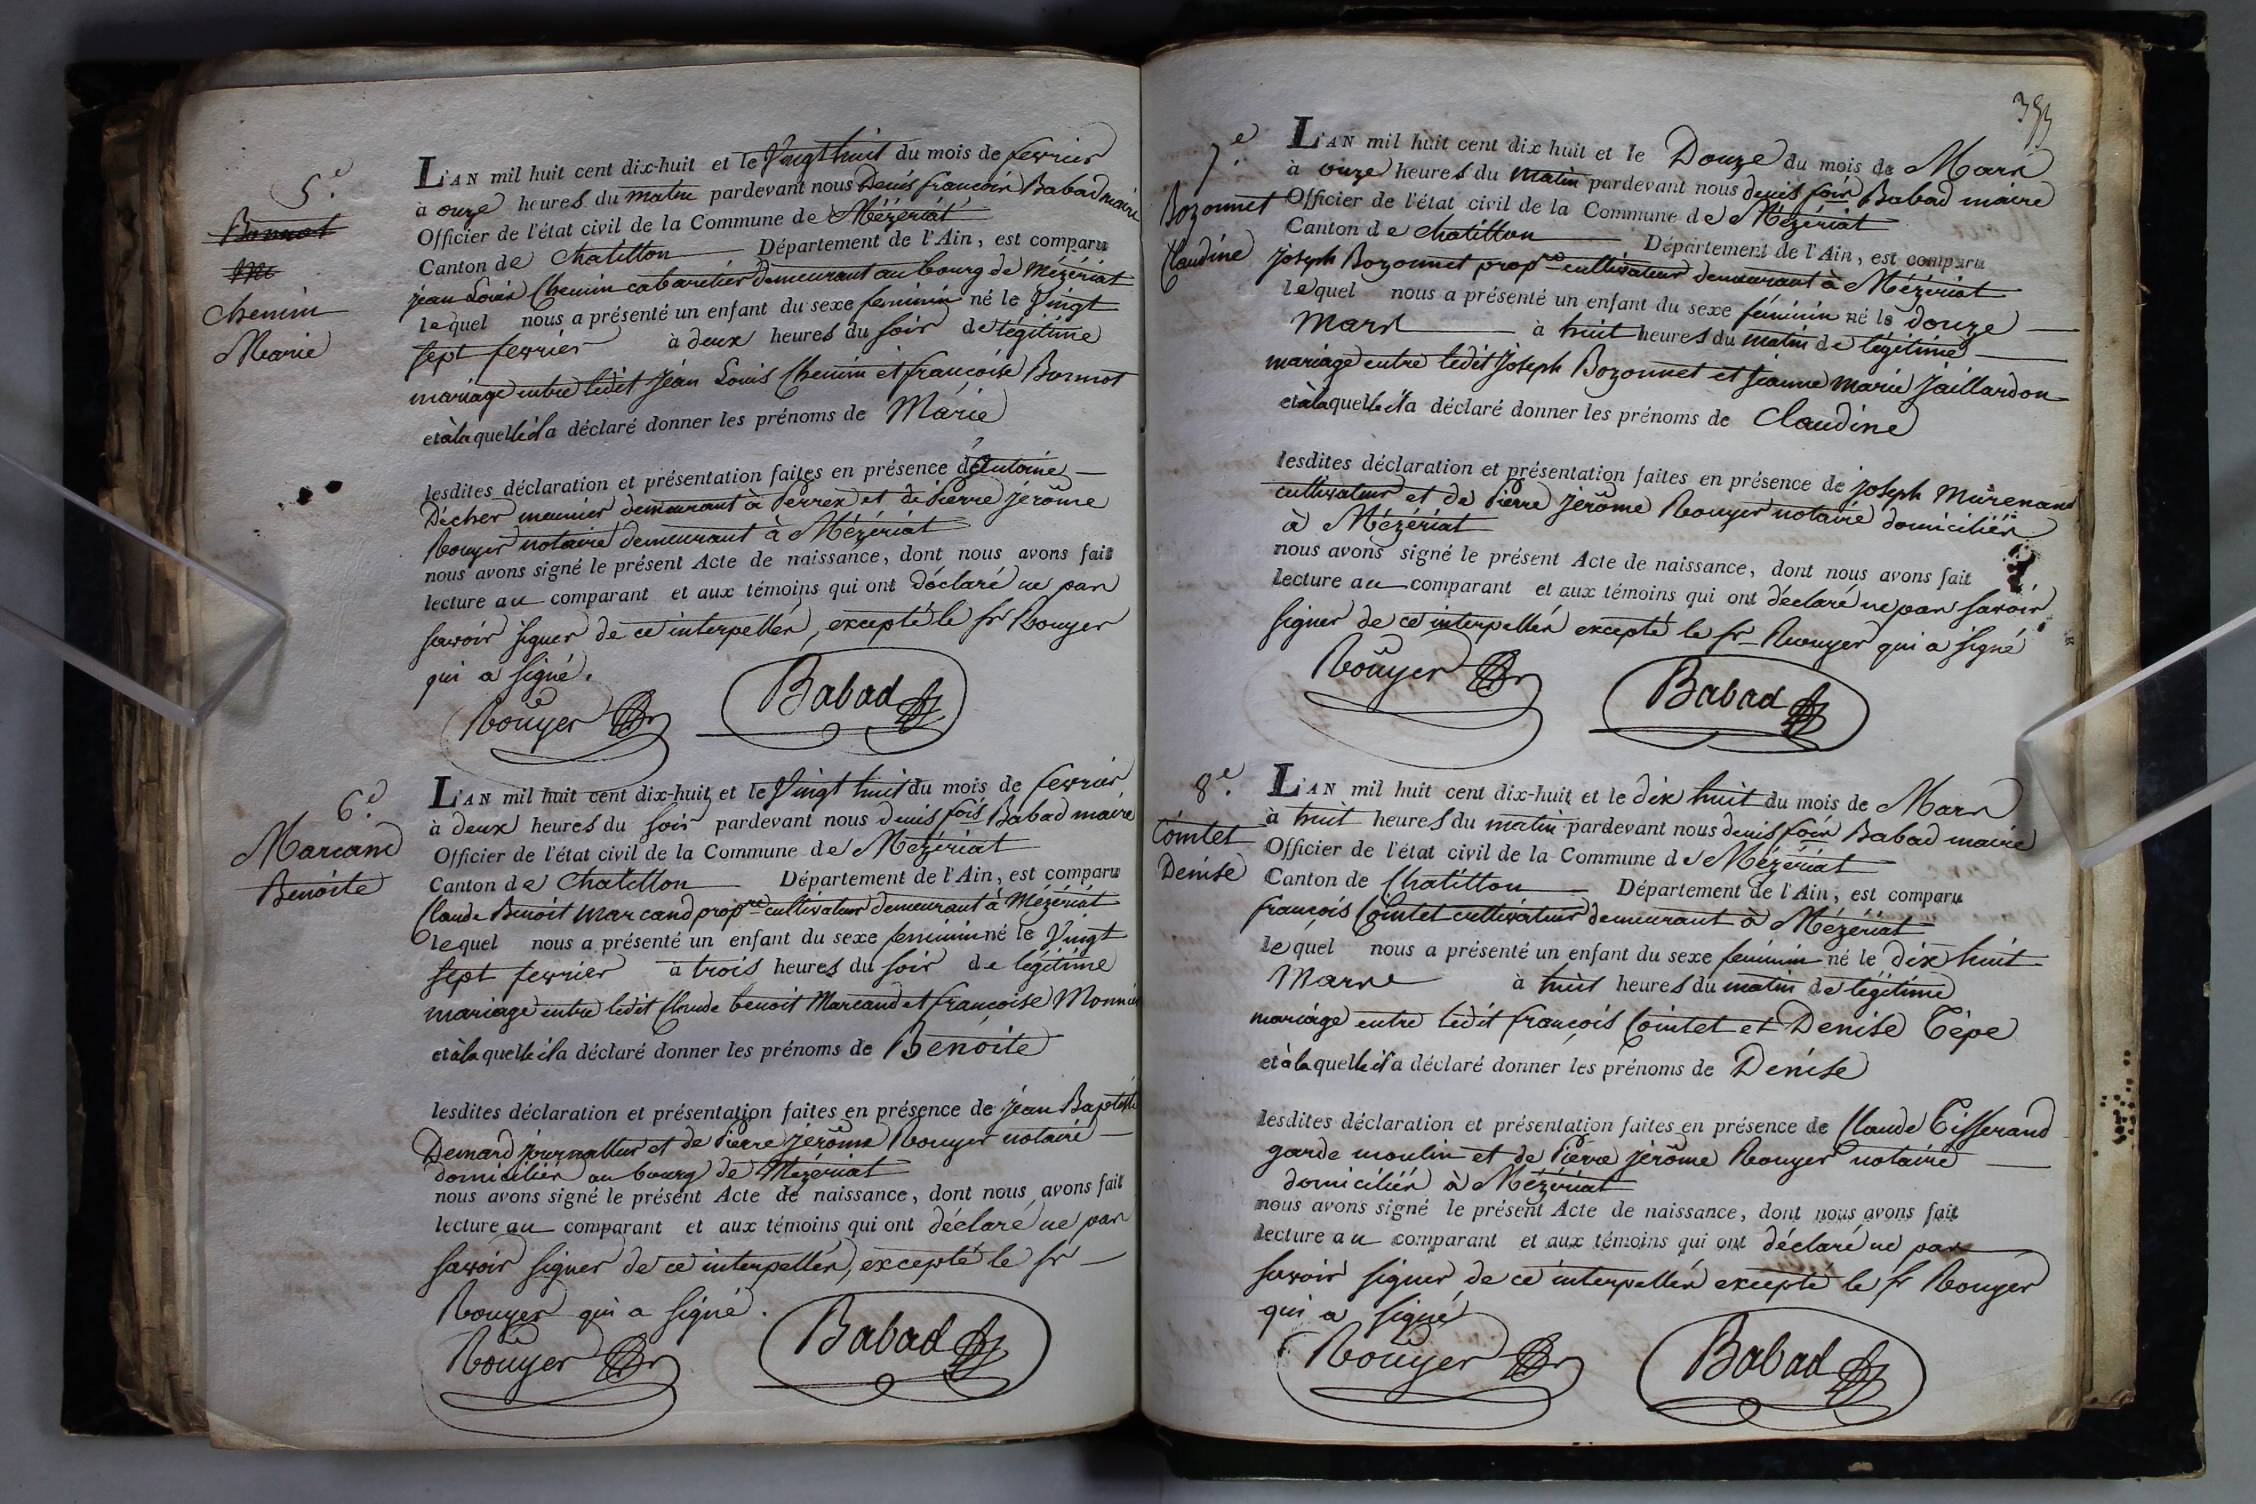 5.e
Bonnot
Me
Chemin
Marie
L'AN mil huit cent dix-huit et le Vingt huit du mois de fevrier
à onze heures du matin pardevant nous Denis françois Babad maire
Officier de l'état civil de la Commune de Mézériat
Canton de Chatillon Département de l'Ain, est comparu
jean Louis Chemin cabaretier demeurant au bourg de Mézériat
lequel nous a présenté un enfant du sexe feminin né le Vingt
sept fevrier à deux heures du soir de légitime
mariage entre ledit jean Louis Chemin et françoise Bonnot
et à la quelle il a déclaré donner les prénoms de Marie
lesdites déclaration et présentation faites en présence d'Antoine
Décher meunier demeurant à Perrex et de Pierre jérôme
Rouyer notaire demeurant à Mézériat
nous avons signé le présent Acte de naissance, dont nous avons fait
lecture au comparant et aux témoins qui ont déclaré ne pas
savoir signer de ce interpellés, excepté le sr Rouyer
qui a signé.
Rouyer Babad
6.e
Marcand
Benoite
L'AN mil huit cent dix-huit et le Vingt huit du mois de fevrier
à deux heures du soir pardevant nous denis fois Babad maire
Officier de l'état civil de la Commune de Mézériat
Canton de Chatillon Département de l'Ain, est comparu
Claude Benoit Marcand propre cultivateur demeurant à Mézériat
lequel nous a présenté un enfant du sexe feminin né le Vingt
sept fevrier à trois heures du soir de légitime
mariage entre ledit Claude benoit Marcand et françoise Monnier
et à la quelle il a déclaré donner les prénoms de Benoite
lesdites déclaration et présentation faites en présence de jean Baptiste
Demard journallier et de Pierre jérôme Rouyer notaire
domiciliés au bourg de Mézériat
nous avons signé le présent Acte de naissance, dont nous avons fait
lecture au comparant et aux témoins qui ont déclaré ne pas
savoir signer de ce interpellés, excepté le sr
Rouyer qui a signé.
Rouyer Babad
7.e
Bozonnet
Claudine
L'AN mil huit cent dix huit et le Douze du mois de Mars
à onze heures du matin pardevant nous denis fois Babad maire
Officier de l'état civil de la Commune de Mézériat
Canton de chatillon Département de l'Ain, est comparu
joseph Bozonnet propre cultivateur demeurant à Mézériat
lequel nous a présenté un enfant du sexe féminin né le douze
Mars à huit heures du matin de légitime
mariage entre ledit joseph Bozonnet et jeanne marie jaillardon
et à la quelle il a déclaré donner les prénoms de Claudine
lesdites déclaration et présentation faites en présence de joseph Murenand
cultivateur et de Pierre jérôme Rouyer notaire domiciliés
à Mézériat
nous avons signé le présent Acte de naissance, dont nous avons fait
lecture au comparant et aux témoins qui ont déclaré ne pas savoir
signer de ce interpellés excepté le sr Rouyer qui a signé
Rouyer Babad
8.e
Cointet
Denise
L'AN mil huit cent dix-huit et le dix huit du mois de Mars
à huit heures du matin pardevant nous denis fois Babad maire
Officier de l'état civil de la Commune de Mézériat
Canton de Chatillon Département de l'Ain, est comparu
françois Cointet cultivateur demeurant à Mézériat
lequel nous a présenté un enfant du sexe féminin né le dix huit
Mars à huit heures du matin de légitime
mariage entre ledit françois Cointet et Denise Tèpe
et à la quelle il a déclaré donner les prénoms de Denise
lesdites déclaration et présentation faites en présence de Claude Tisserand
garde moulin et de Pierre jérôme Rouyer notaire
domiciliés à Mézériat
nous avons signé le présent Acte de naissance, dont nous avons fait
lecture au comparant et aux témoins qui ont déclaré ne pas
savoir signer de ce interpellés excepté le sr Rouyer
qui a signé
Rouyer Babad